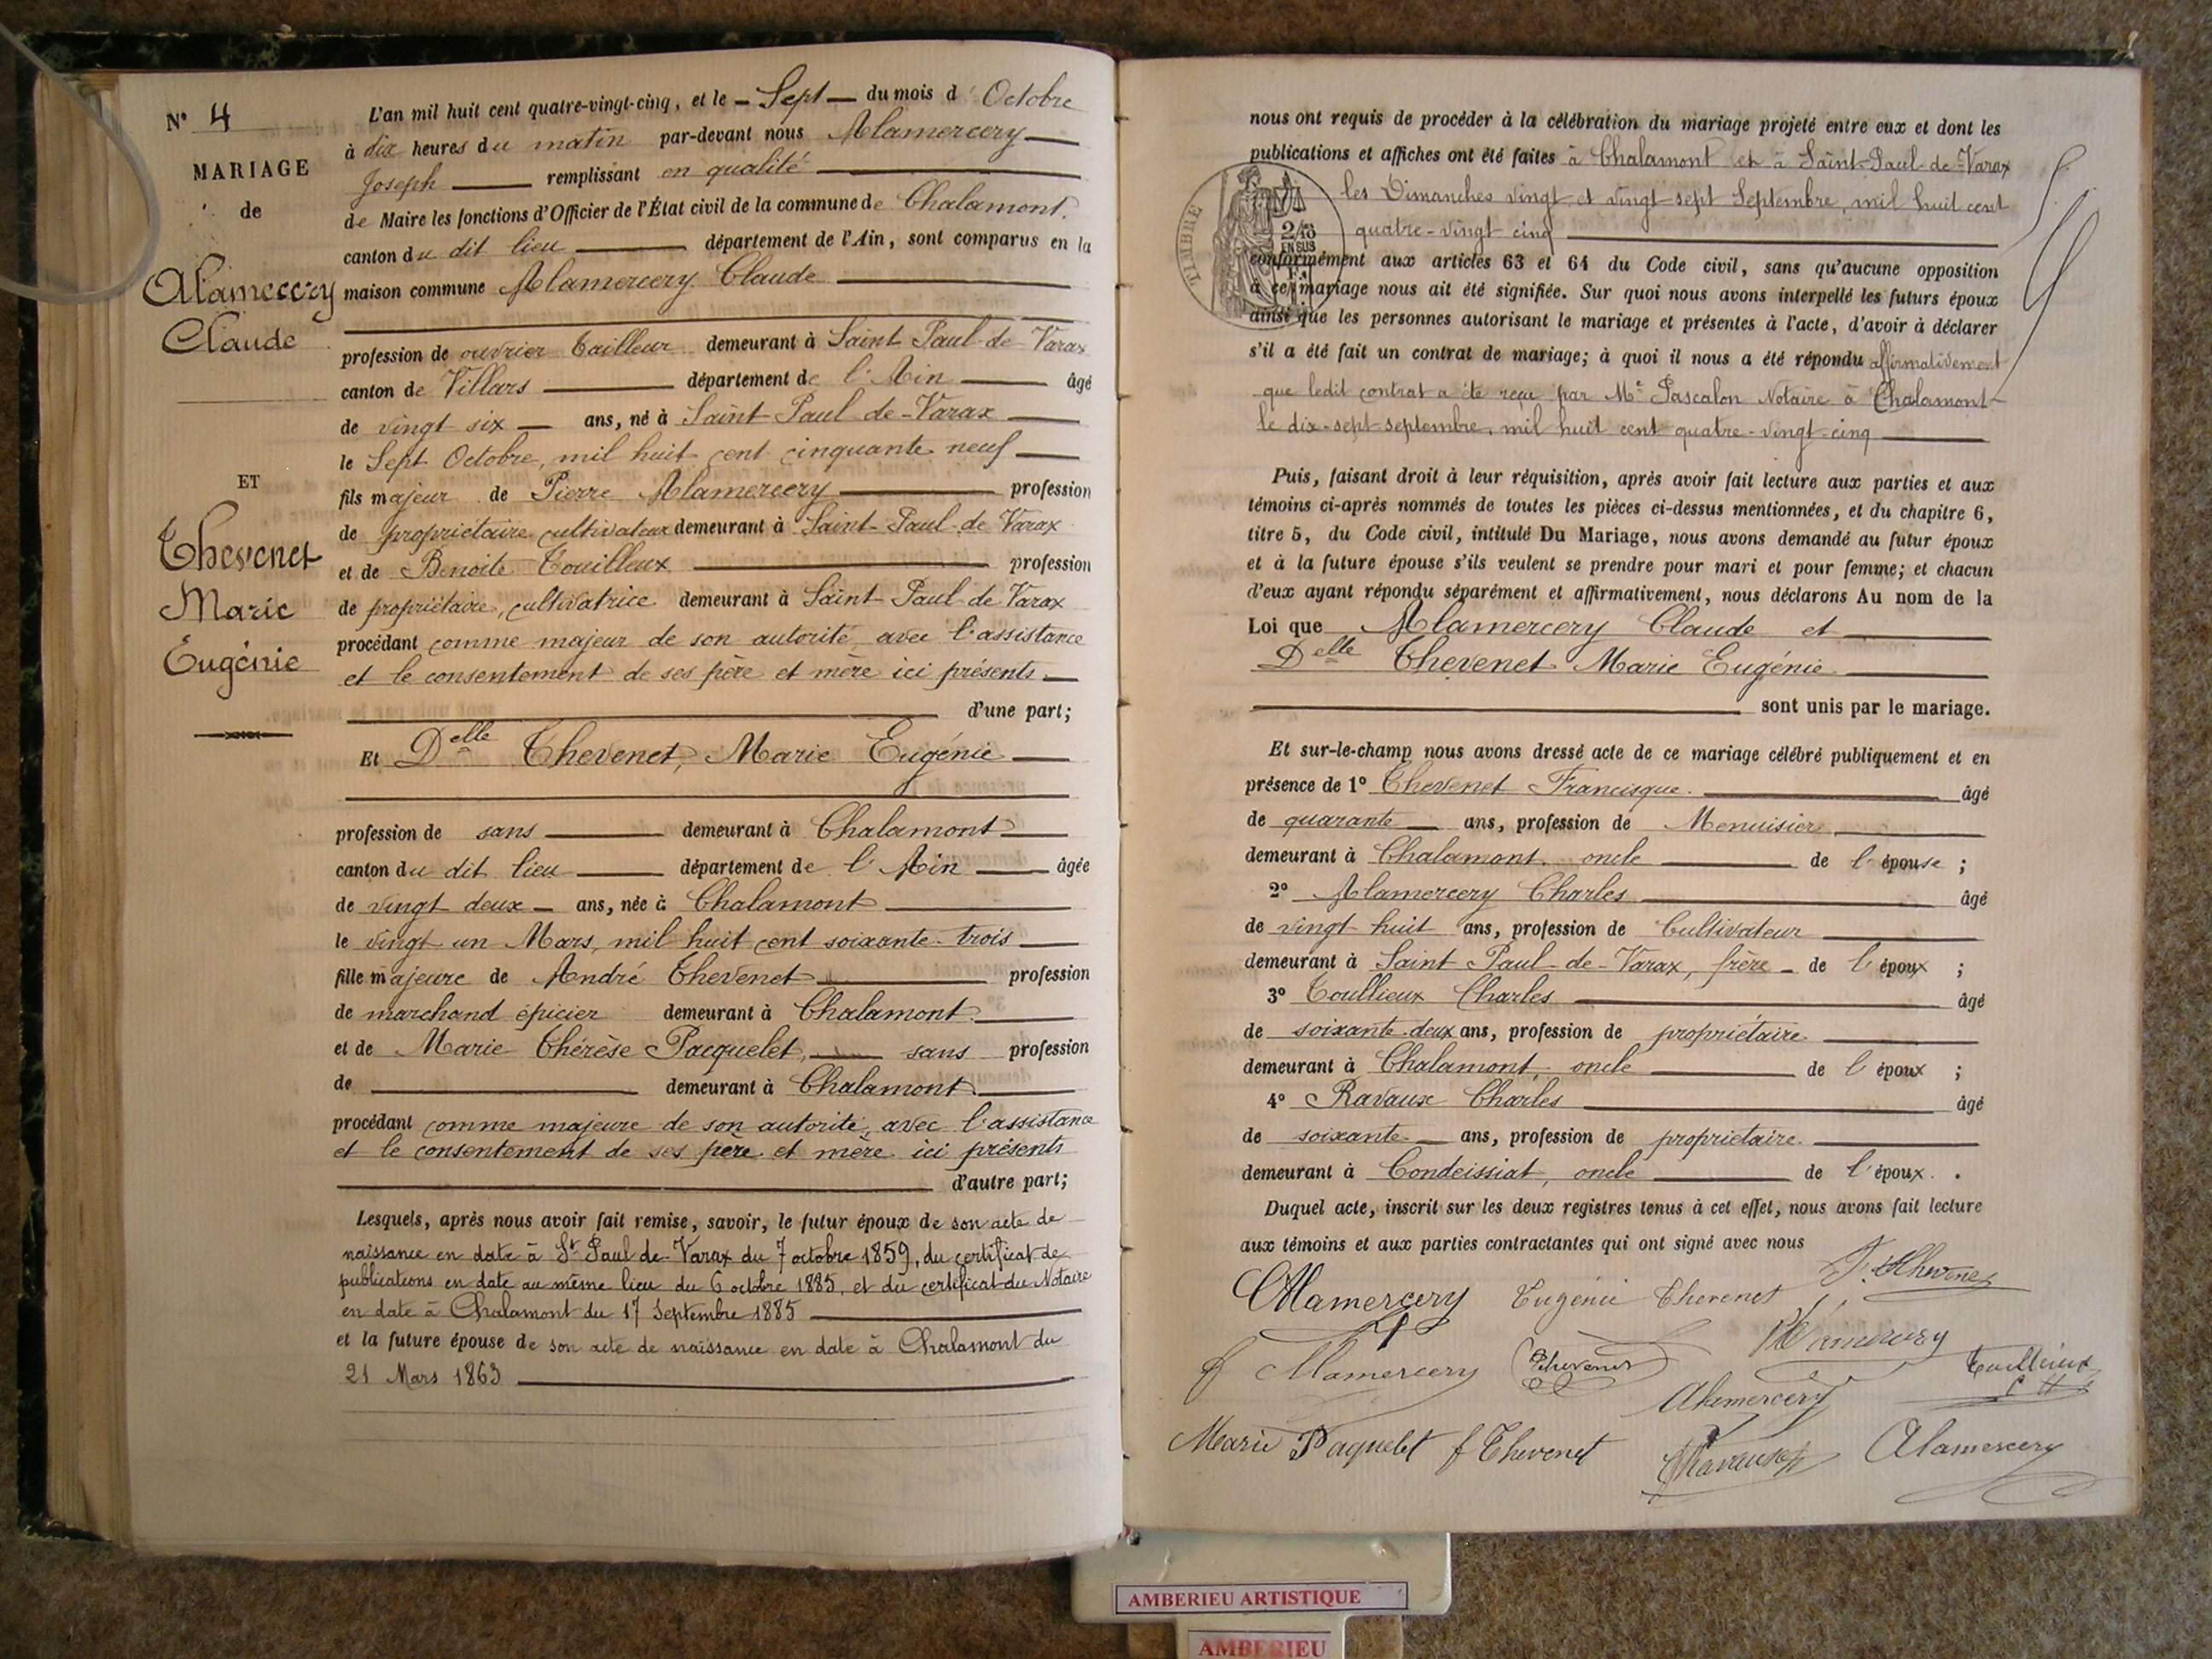 N° 4
MARIAGE
de
Alamercery
Claude
ET
Thevenet
Marie
Eugénie
L'an mil huit cent quatre-vingt-cinq, et le Sept du mois d'Octobre
à dix heures du matin par-devant nous Alamercery
Joseph remplissant en qualité
de Maire les fonctions d'Officier de l'État civil de la commune de Chalamont,
canton du dit lieu département de l'Ain, sont comparus en la
maison commune Alamercery Claude
profession de ouvrier tailleur demeurant à Saint Paul-de-Varax
canton de Villars département de l'Ain âgé
de vingt six ans, né à Saint Paul-de-Varax
le Sept Octobre, mil huit cent cinquante neuf
fils majeur de Pierre Alamercery profession
de propriétaire cultivateur demeurant à Saint-Paul-de-Varax
et de Benoite Touilleux profession
de propriétaire, cultivatrice demeurant à Saint-Paul-de-Varax
procédant comme majeur de son autorité avec l'assistance
et le consentement de ses père et mère ici présents
d'une part;
Et Delle Thevenet, Marie Eugénie
profession de sans demeurant à Chalamont
canton du dit lieu département de l'Ain âgée
de vingt deux ans, née à Chalamont
le vingt un Mars, mil huit cent soixante-trois
fille majeure de André Thevenet profession
de marchand épicier demeurant à Chalamont
et de Marie Thérèse Pacquelet, sans profession
de demeurant à Chalamont
procédant comme majeure de son autorité, avec l'assistance
et le consentement de ses père et mère ici présents
d'autre part;
Lesquels, après nous avoir fait remise, savoir, le futur époux de son acte de
naissance en date à St Paul-de-Varax du 7 octobre 1859, du certificat de
publications en date au même lieu du 6 octobre 1885, et du certificat du Notaire
en date à Chalamont du 17 Septembre 1885
et la future épouse de son acte de naissance en date à Chalamont du
21 Mars 1863
nous ont requis de procéder à la célébration du mariage projeté entre eux et dont les
publications et affiches ont été faites à Chalamont et à Saint-Paul-de-Varax
les Dimanches vingt et vingt-sept Septembre, mil huit cent
quatre-vingt cinq
TIMBRE
2/10
EN SUS
conformément aux articles 63 et 64 du Code civil, sans qu'aucune opposition
à ce mariage nous ait été signifiée. Sur quoi nous avons interpellé les futurs époux
ainsi que les personnes autorisant le mariage et présentes à l'acte, d'avoir à déclarer
s'il a été fait un contrat de mariage; à quoi il nous a été répondu affirmativement
que ledit contrat a été reçu par Me Pascalon Notaire à Chalamont
le dix-sept septembre, mil huit cent quatre-vingt-cinq
Puis, faisant droit à leur réquisition, après avoir fait lecture aux parties et aux
témoins ci-après nommés de toutes les pièces ci-dessus mentionnées, et du chapitre 6,
titre 5, du Code civil, intitulé Du Mariage, nous avons demandé au futur époux
et à la future épouse s'ils veulent se prendre pour mari et pour femme; et chacun
d'eux ayant répondu séparément et affirmativement, nous déclarons Au nom de la
Loi que Alamercery Claude et
Delle Thevenet Marie Eugénie
sont unis par le mariage.
Et sur-le-champ nous avons dressé acte de ce mariage célébré publiquement et en
présence de 1° Thevenet Francisque âgé
de quarante ans, profession de Menuisier
demeurant à Chalamont, oncle de l'épouse;
2° Alamercery Charles âgé
de vingt huit ans, profession de Cultivateur
demeurant à Saint Paul-de-Varax, frère de l'époux;
3° Toullieux Charles âgé
de soixante-deux ans, profession de propriétaire
demeurant à Chalamont, oncle de l'époux;
4° Ravaux Charles âgé
de soixante ans, profession de propriétaire
demeurant à Condeissiat, oncle de l'époux.
Duquel acte, inscrit sur les deux registres tenus à cet effet, nous avons fait lecture
aux témoins et aux parties contractantes qui ont signé avec nous
Alamercery Eugénie Thevenet
Alamercery Thevenet
Alamercery
Marie Paquelet f Thevenet Alamercery
AMBERIEU ARTISTIQUE
AMBERIEU